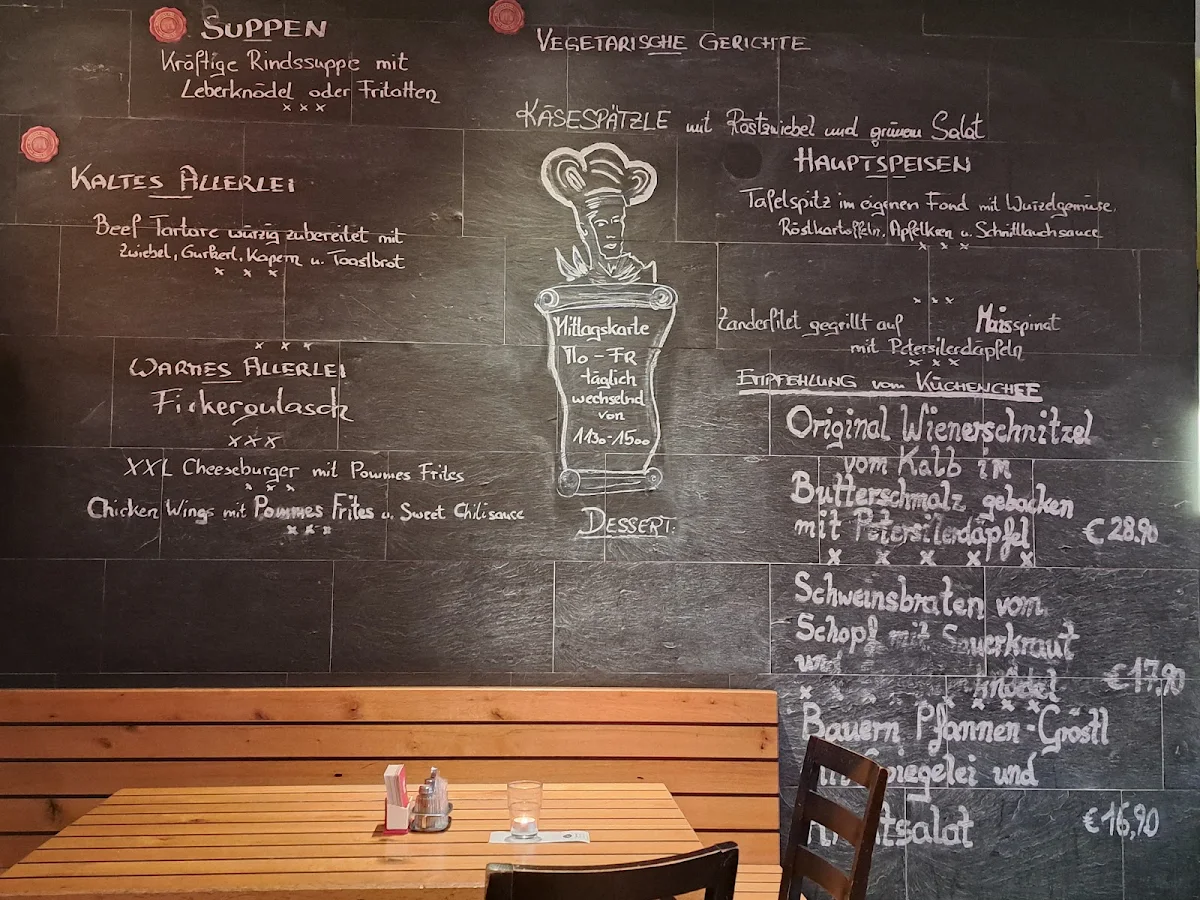 SUPPEN
Kräftige Rindssuppe mit
Leberknödel oder Fritatten
x x x
KALTES ALLERLEI
Beef Tartare würzig zubereitet mit
Zwiebel, Gurkerl, Kapern u. Toastbrot
x x x
x x x
WARMES ALLERLEI
Fiakergulasch
x x x
XXL Cheeseburger mit Pommes Frites
x x x
Chicken Wings mit Pommes Frites u. Sweet Chilisauce
x x x
VEGETARISCHE GERICHTE
KÄSESPÄTZLE mit Röstzwiebel und grünem Salat
Mittagskarte
MO - FR
täglich
wechselnd
von
1130-1500
DESSERT:
HAUPTSPEISEN
Tafelspitz im eigenen Fond mit Wurzelgemüse,
Röstkartoffeln, Apfelkren u. Schnittlauchsauce
x x x
x x x
Zanderfilet gegrillt auf Maisspinat
mit Petersilerdäpfeln
x x x
EMPFEHLUNG vom KÜCHENCHEF
Original Wienerschnitzel
vom Kalb im
Butterschmalz gebacken
mit Petersilerdäpfel € 28.90
x x x x x
Schweinsbraten vom
Schopf mit Sauerkraut
und knödel € 17,90
x x x x x x x
Bauern Pfannen-Gröstl
Spiegelei und
€ 16,90